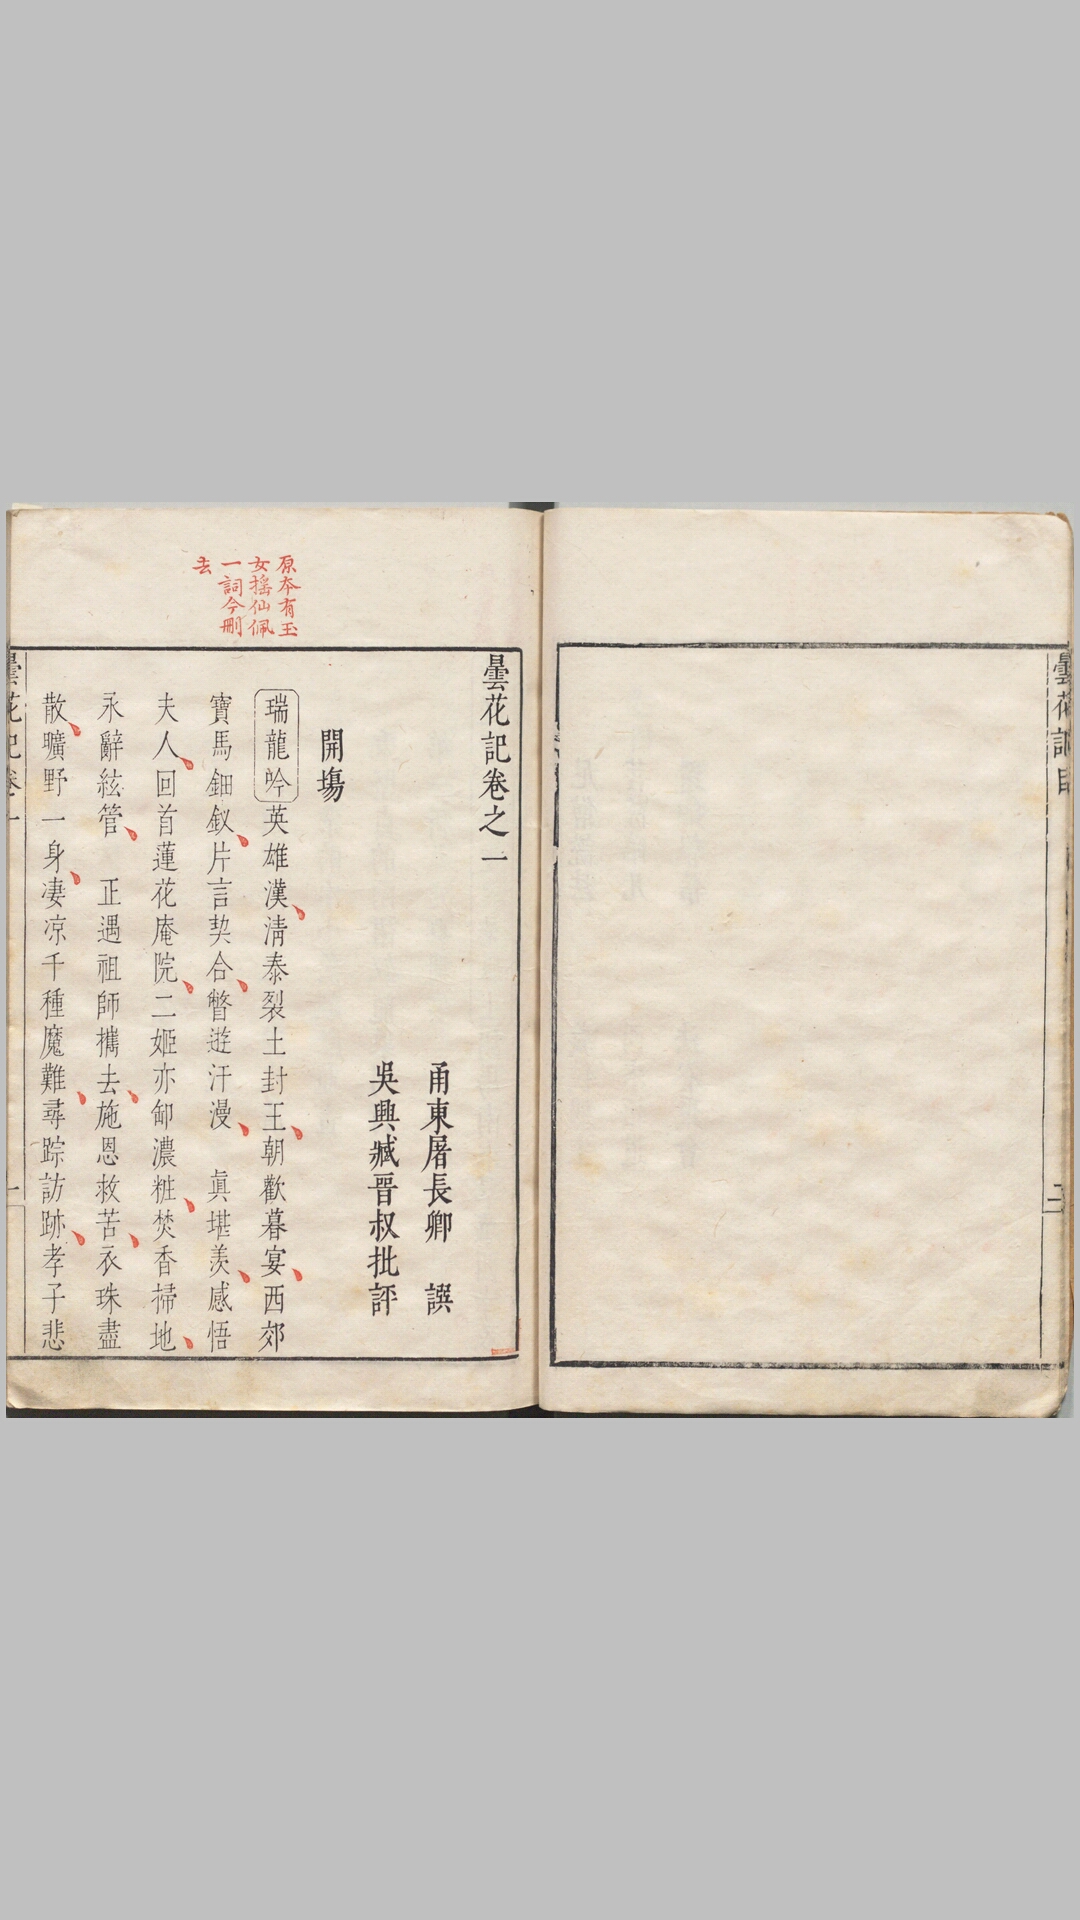 曇花記目
二
曇花記卷之一
甬東屠長卿 譔
吳興臧晉叔批評
開塲
原本有玉
女搖仙佩
一詞今刪
去
瑞龍吟英雄漢清泰裂土封王朝歡暮宴西郊
寶馬鈿釵片言契合瞥遊汗漫 眞堪羨感悟
夫人回首蓮花庵院二姬亦卸濃粧焚香掃地
永辭絃管 正遇祖師擕去施恩救苦衣珠盡
散曠野一身凄凉千種魔難尋踪訪跡孝子悲
曇花記卷一
一